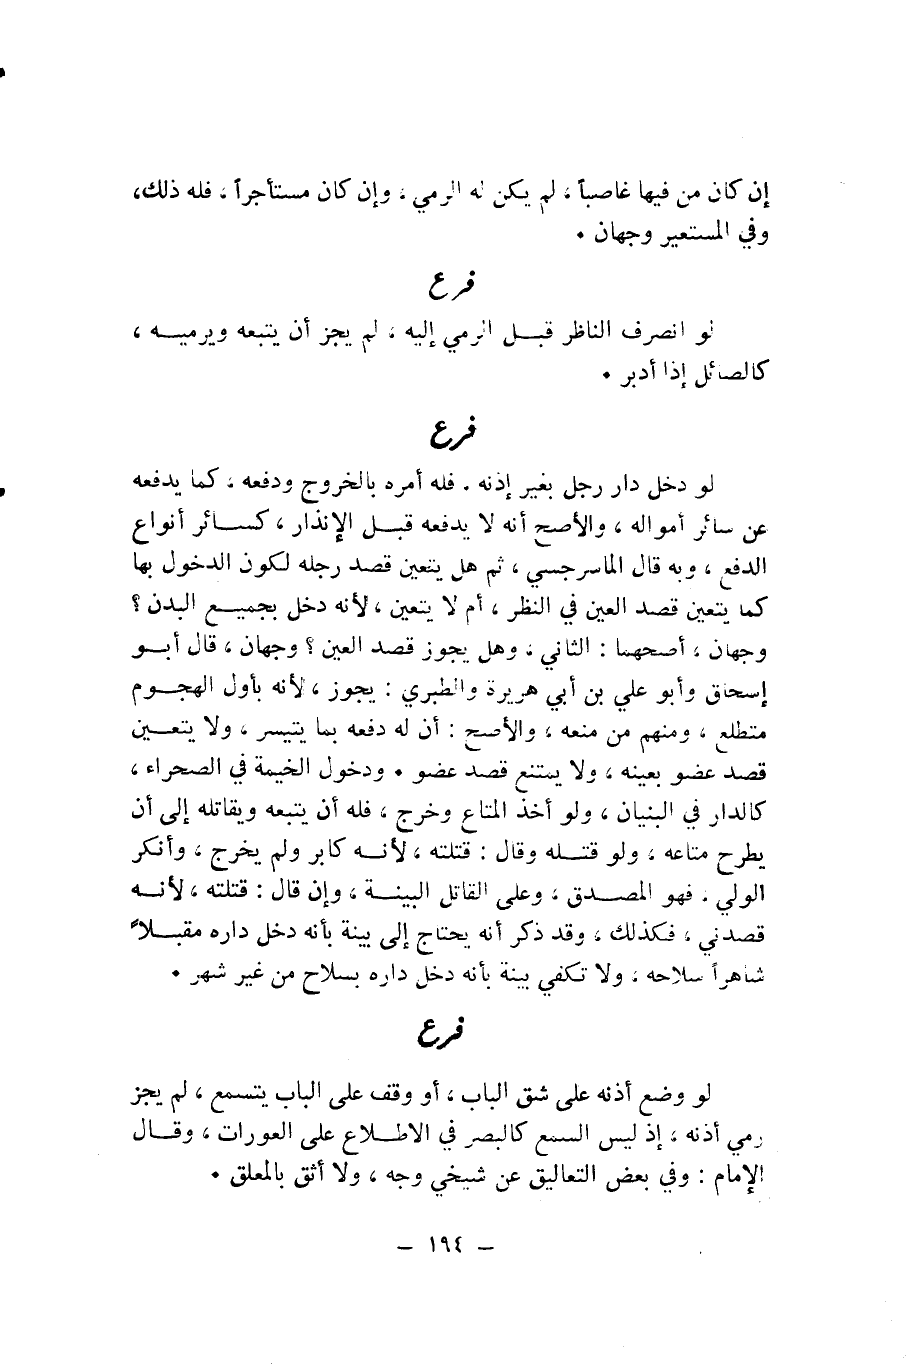 إن كان من فيها غاصباً ، لم يكن له الرمي ، وإن كان مستأجراً ، فله ذلك ،
وفي المستعير وجهان .
فرع
لو انصرف الناظر قبل الرمي إليه ، لم يجز أن يتبعه ويرميه ،
كالصائل إذا أدبر .
فرع
لو دخل دار رجل بغير إذنه . فله أمره بالخروج ودفعه ، كما يدفعه
عن سائر أمواله ، والأصح أنه لا يدفعه قبل الإنذار ، كسائر أنواع
الدفع ، وبه قال الماسرجسي ، ثم هل يتعين قصد رجله لكون الدخول بها
كما يتعين قصد العين في النظر ، أم لا يتعين ، لأنه دخل بجميع البدن ؟
وجهان ، أصحهما : الثاني ، وهل يجوز قصد العين ؟ وجهان ، قال أبو
إسحاق وأبو علي بن أبي هريرة والطبري : يجوز ، لأنه بأول الهجوم
متطلع ، ومنهم من منعه ، والأصح : أن له دفعه بما يتيسر ، ولا يتعين
قصد عضو بعينه ، ولا يمتنع قصد عضو . ودخول الخيمة في الصحراء ،
كالدار في البنيان ، ولو أخذ المتاع وخرج ، فله أن يتبعه ويقاتله إلى أن
يطرح متاعه ، ولو قتله وقال : قتلته ، لأنه كابر ولم يخرج ، وأنكر
الولي . فهو المصدق ، وعلى القاتل البينة ، وإن قال : قتلته ، لأنه
قصدني ، فكذلك ، وقد ذكر أنه يحتاج إلى بينة بأنه دخل داره مقبلاً
شاهراً سلاحه ، ولا تكفي بينة بأنه دخل داره بسلاح من غير شهر .
فرع
لو وضع أذنه على شق الباب ، أو وقف على الباب يتسمع ، لم يجز
رمي أذنه ، إذ ليس السمع كالبصر في الاطلاع على العورات ، وقال
الإمام : وفي بعض التعاليق عن شيخي وجه ، ولا أثق بالمعلق .
– ١٩٤ –